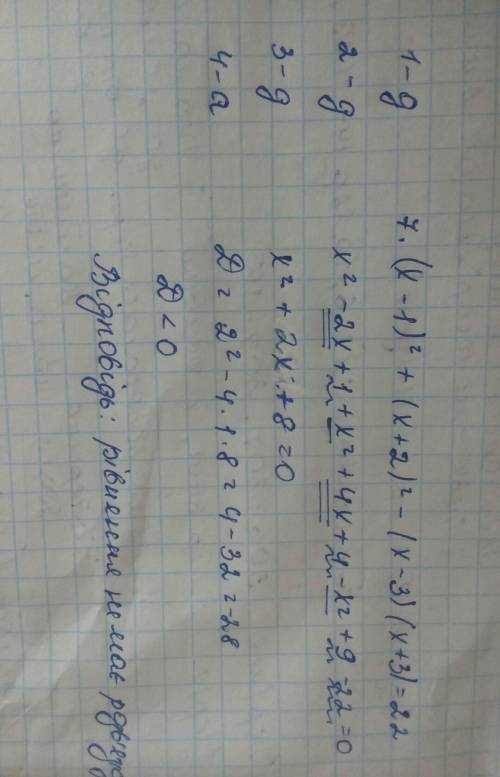 1 - g
2 - g
3 - g
4 - a
7. (x - 1)² + (x + 2)² - (x - 3)(x + 3) = 22
x² - 2x + 1 + x² + 4x + 4 - x² + 9 - 22 = 0
x² + 2x + 8 = 0
D = 2² - 4 · 1 · 8 = 4 - 32 = -28
D < 0
Відповідь: рівняння не має